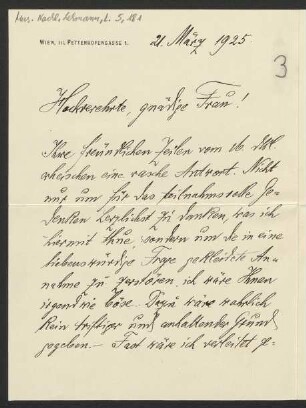 21. März 1925
WIEN, III. PETTENKOFENGASSE 1.
3
Hochverehrte, gnädige Frau!
Ihre freundlichen Zeilen vom 16. d.M.
erheischen eine rasche Antwort. Nicht
nur um für das teilnahmsvolle Ge-
denken herzlichst zu danken, was ich
hiermit thue, sondern um die in eine
liebenswürdige Frage gekleidete An-
nahme zu zerstören, ich wäre Ihnen
irgendwie böse. Dazu wäre wahrlich
kein triftiger und anhaltender Grund
gegeben. – Fast wäre ich verleitet ge-